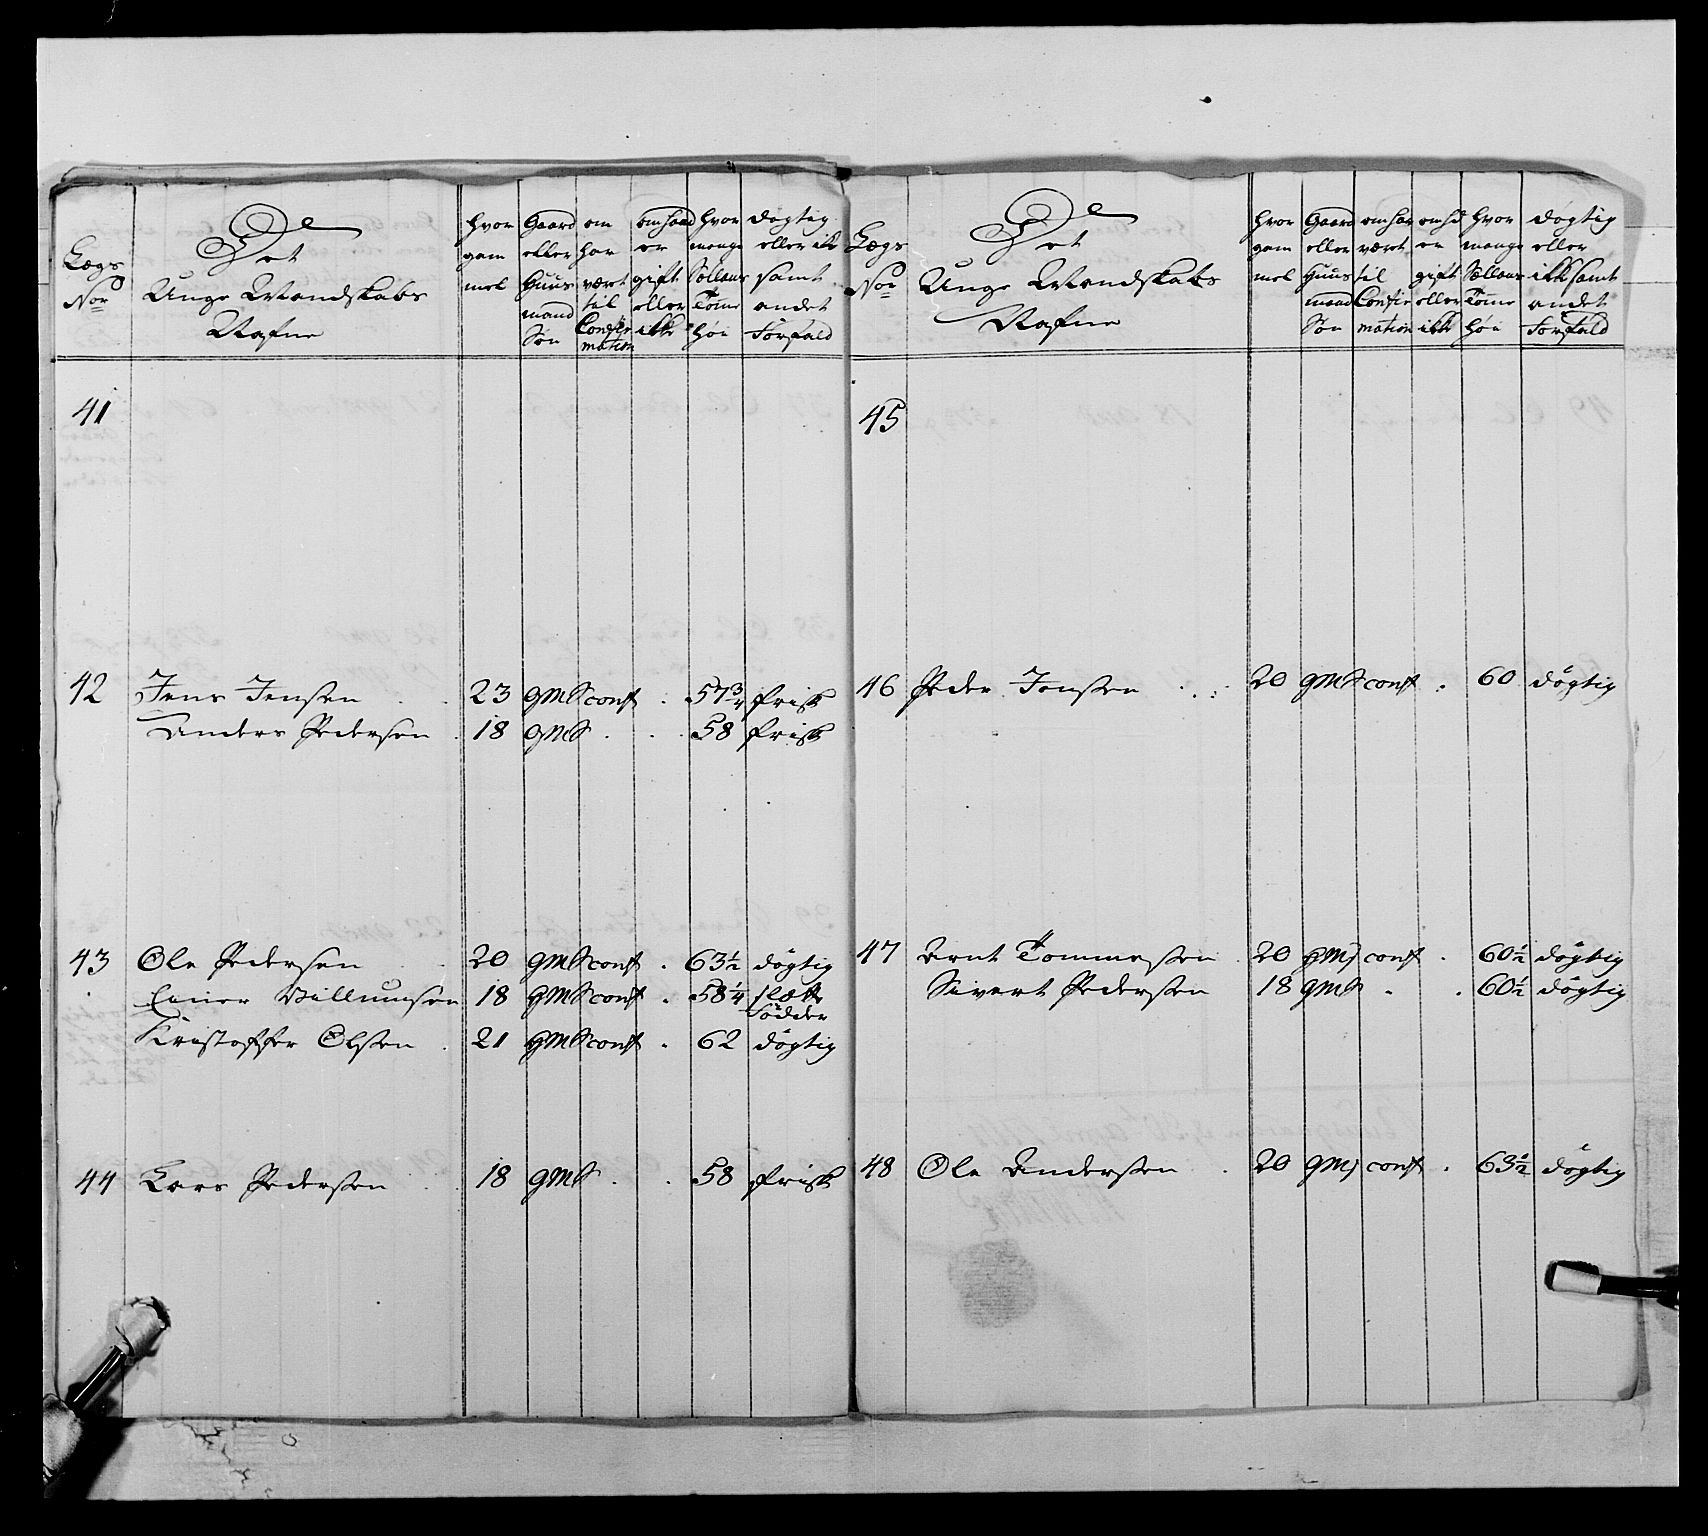 Lægs
No
Det
Unge Mandskabs
Nafne
hvor
gam
mel
Gaard
eller
Huus
mand
Søn
om
har
været
til
Confir
mation
om hand
er
gift
eller
ikke
hvor
mange
Sællans
Tome
høi
døgtig
eller ik
samt
andet
Forfald
41
42 Jens Jensen . . 23 GMS conf . 57 3/4 frisk
Anders Pedersen . 18 GMS . . . 58 frisk
43 Ole Pedersen . . 20 GMS conf . 63 1/2 døgtig
Einer Villumsen 18 GMS conf . 58 1/4 slætte
Födder
Kristoffer Olsen . 21 GMS conf . 62 døgtig
44 Lars Pedersen . . 18 GMS . . 58 frisk
Lægs
No
Det
Unge Mandskabs
Nafne
hvor
gam
mel
Gaard
eller
Huus
mand
Søn
om har
været
til
Confir
mation
om hd
er
gift
eller
ikke
hvor
mange
Sællans
Tome
høi
døgtig
eller
ikk samt
andet
Forfald
45
46 Peder Jonsen . . : 20 GMS conf . 60 døgtig
47 Arnt Tommesen . 20 GMS conf . 60 1/2 døgtig
Sivert Pedersen 18 GMS . . 60 1/2 døgtig
48 Ole Andersen . 20 GMS conf . 63 1/2 døgtig